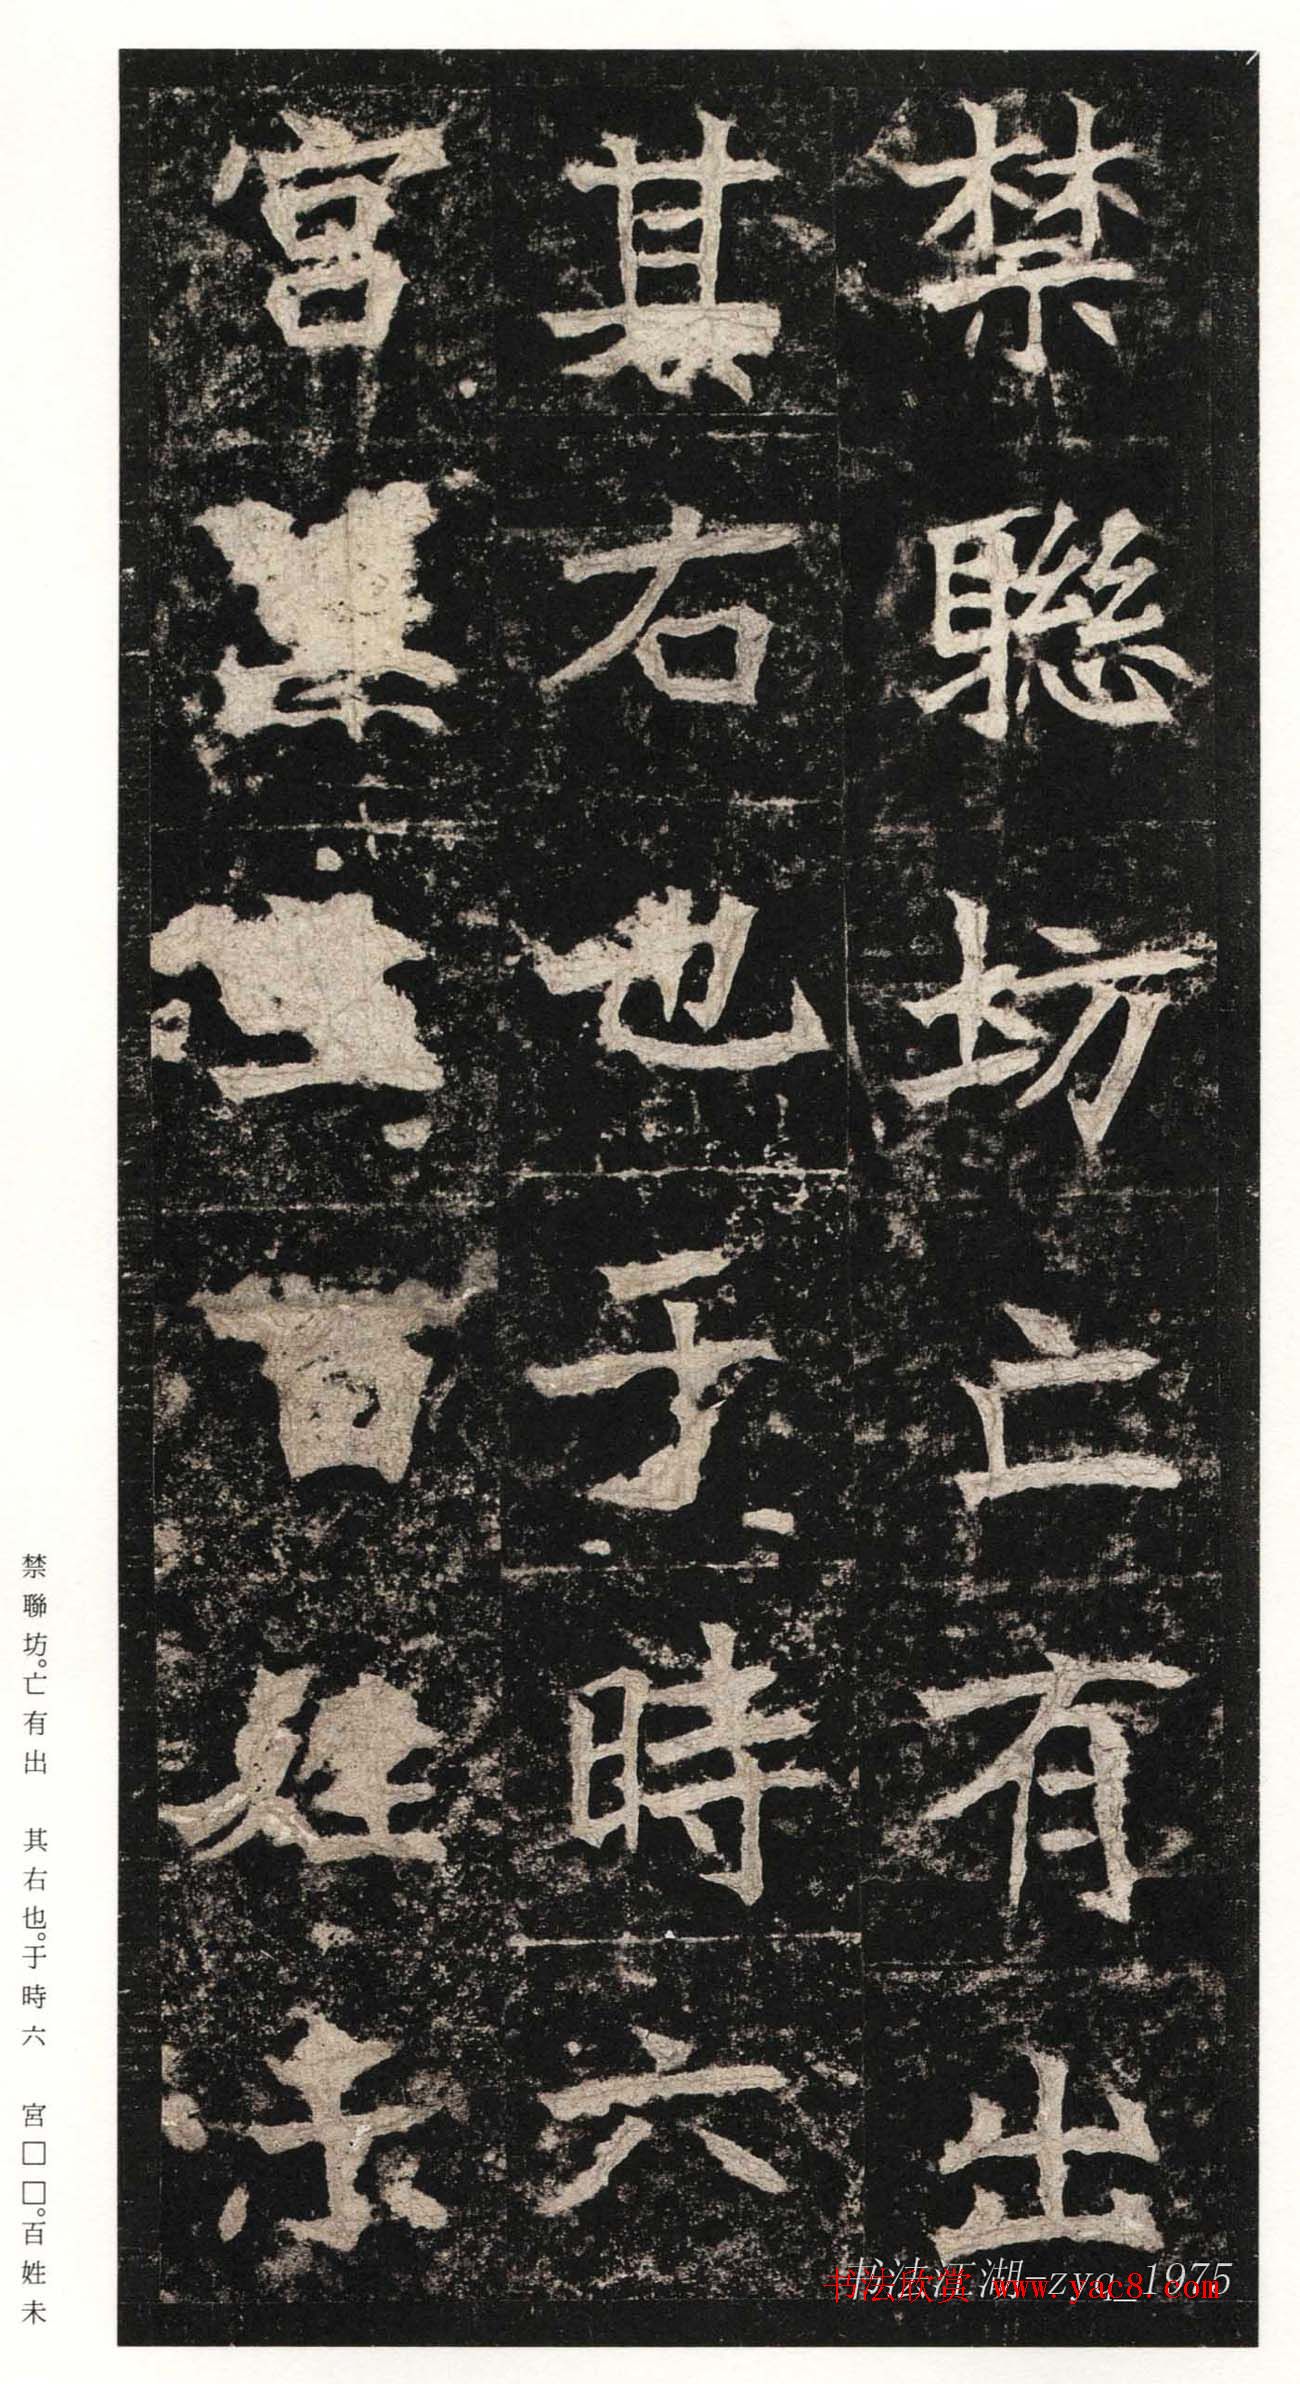 禁聯坊亡有出
其右也于時六
宮百姓未
禁聯坊。亡有出 其右也。于時六 宮□□。百姓未
书法江湖-zyq_1975
书法欣赏 www.yac8.com